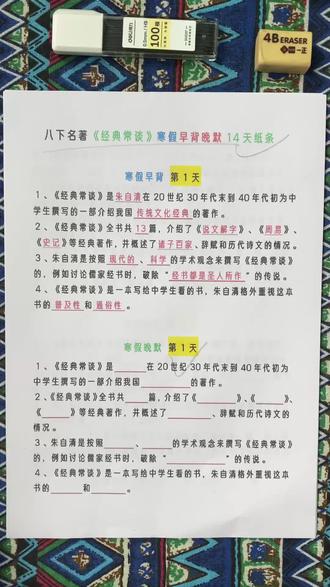 DELI得力
0.5mm/HB
100
4B ERASER
一正
八下名著《经典常谈》寒假早背晚默 14 天纸条
寒假早背 第 1 天
1、《经典常谈》是朱自清在 20 世纪 30 年代末到 40 年代初为中
学生撰写的一部介绍我国 传统文化经典 的著作。
2、《经典常谈》全书共 13 篇，介绍了《说文解字》、《周易》、
《史记》等经典著作，并概述了诸子百家、辞赋和历代诗文的情况。
3、朱自清是按照 现代的 、科学 的学术观念来撰写《经典常谈》
的，例如讨论儒家经书时，破除 “经书都是圣人所作 ”的传说。
4、《经典常谈》是一本写给中学生看的书，朱自清格外重视这本
书的 普及性 和 通俗性 。
寒假晚默 第 1 天
1、《经典常谈》是______在 20 世纪 30 年代末到 40 年代初为
中学生撰写的一部介绍我国__________的著作。
2、《经典常谈》全书共____篇，介绍了《______》、《____》、
《_____》等经典著作，并概述了________、辞赋和历代诗文的
情况。
3、朱自清是按照______、______的学术观念来撰写《经典常谈》
的，例如讨论儒家经书时，破除 “______________”的传说。
4、《经典常谈》是一本写给中学生看的书，朱自清格外重视这本
书的______和______。